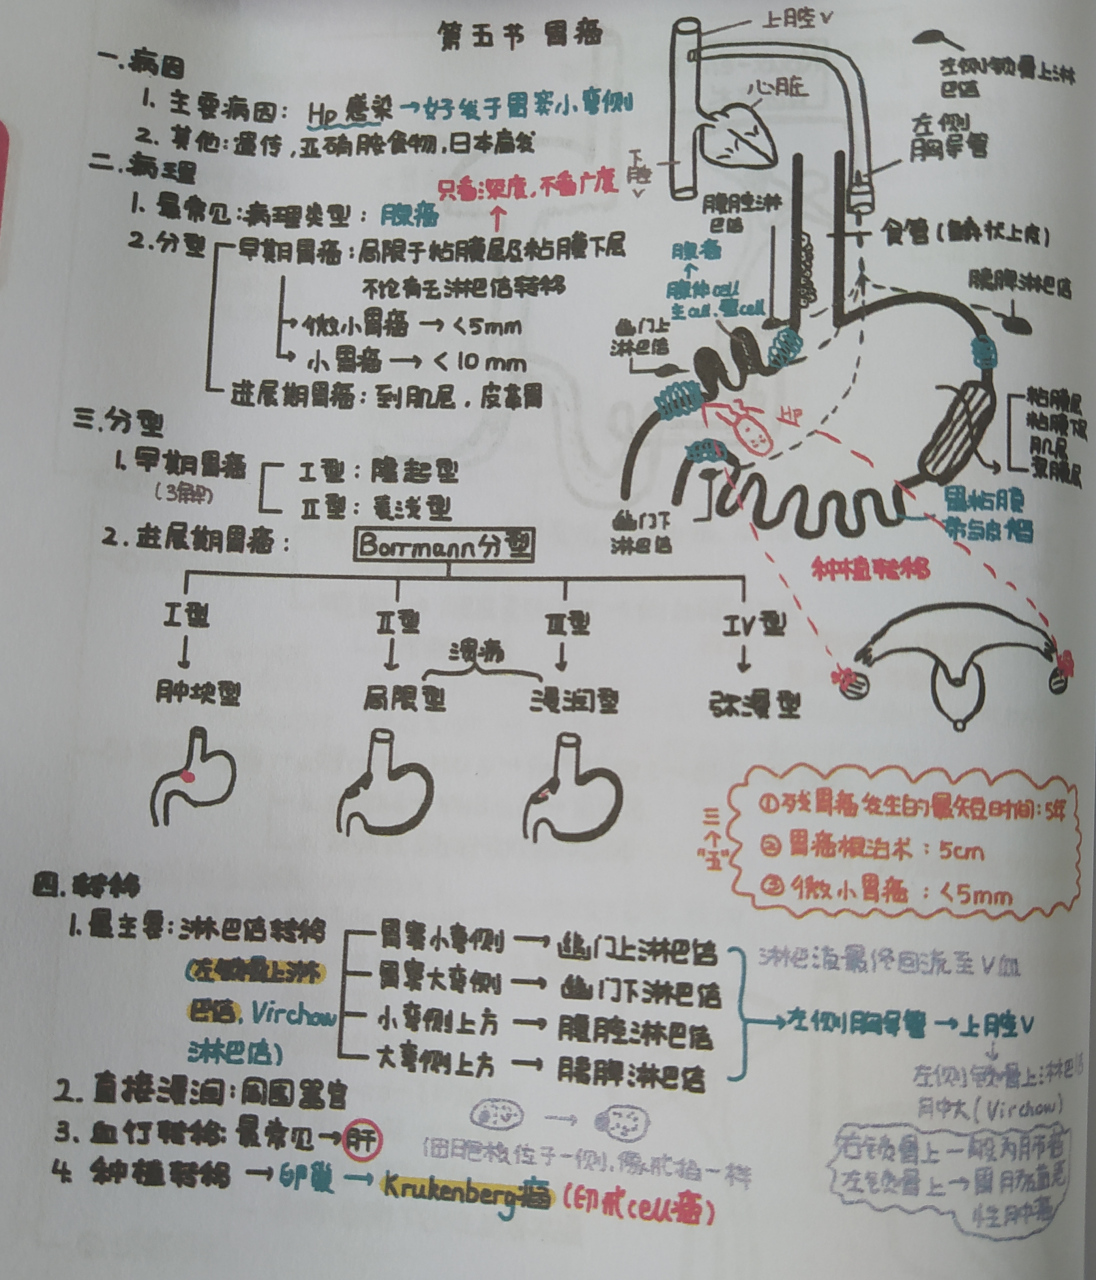 第五节 胃癌
一.病因
1. 主要病因: Hp 感染→好发于胃窦小弯侧
2. 其他:遗传,亚硝胺食物,日本高发
二.病理
只看深度,不看广度
1. 最常见:病理类型:腺癌
2.分型
早期胃癌:局限于粘膜层及粘膜下层
不论有无淋巴结转移
微小胃癌 → <5mm
小胃癌 → <10mm
进展期胃癌:到肌层,皮革胃
三.分型
1. 早期胃癌
I型:隆起型
II型:表浅型
2. 进展期胃癌:
Borrmann分型
I型
II型
III型
IV型
溃疡
肿块型
局限型
浸润型
弥漫型
上腔V
心脏
下腔V
左侧锁骨上淋巴结
左侧
胸导管
腹腔淋
巴结
食管(鳞状上皮)
胰脾淋巴结
腺癌
腺体cell
主cell.壁cell
幽门上
淋巴结
粘膜层
粘膜下层
肌层
浆膜层
胃粘膜
幽门下
淋巴结
种植转移
三个"五"
①残胃癌发生的最短时间:5年
②胃癌根治术:5cm
③微小胃癌:<5mm
四.转移
1.最主要:淋巴结转移
(左锁骨上淋
巴结, Virchow
淋巴结)
胃窦小弯侧 → 幽门上淋巴结
胃窦大弯侧 → 幽门下淋巴结
小弯侧上方 → 腹腔淋巴结
大弯侧上方 → 胰脾淋巴结
淋巴液最终回流至V血
→左侧胸导管→上腔V
左侧锁骨上淋巴结
肿大(Virchow)
2. 直接浸润:周围器官
3. 血行转移:最常见→肝
细胞核位于一侧,像戒指一样
4. 种植转移 → 卵巢 → Krukenberg瘤 (印戒cell癌)
右锁骨上→一般为肺癌
左锁骨上→胃肠道恶
性肿瘤